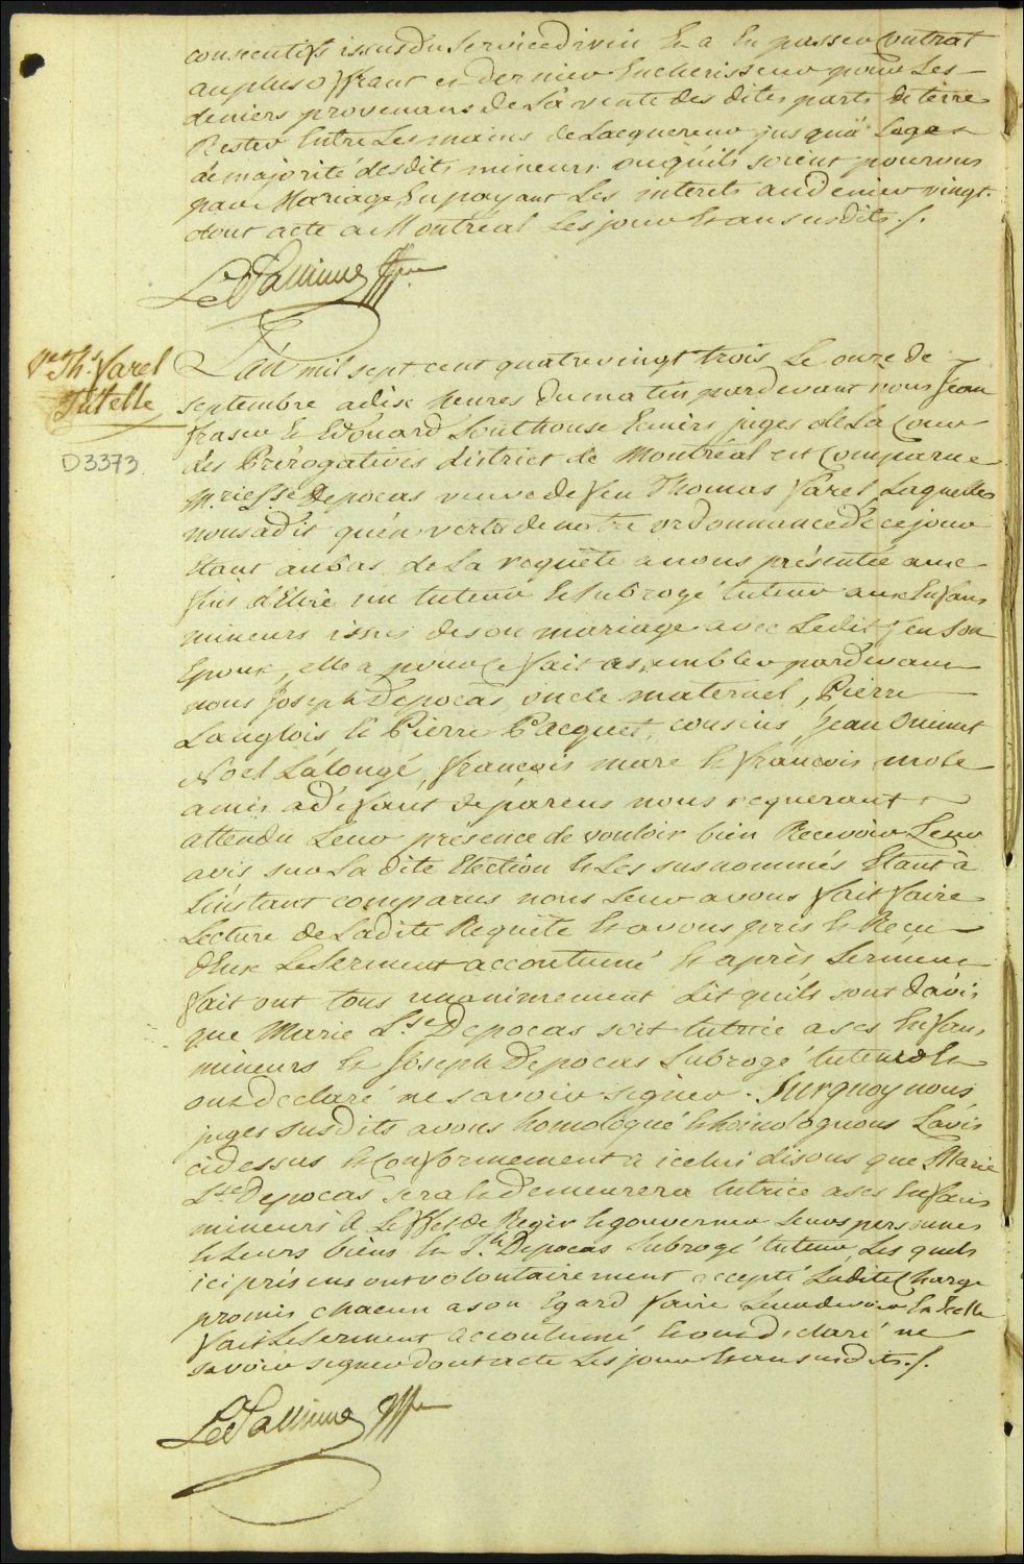 consecutifs issus du Service divin Et a En passer Contrat
au plus offrant et dernier Encherisseur pour Les
deniers provenans de La vente des dites parts de terre
Rester Entre Les mains de Lacquereur jusqu'a Lage
de majorité desdits mineurs ou qu'ils soient pourvus
par Mariage En payant Les interets au denier vingt.
dont acte a Montréal Les jour Et an susdits ./.
Le Pallieur Gff.
Ve Ths. Varel
Tutelle
D3373.
L'an mil sept cent quatre vingt trois Le onze de
septembre a dix heures du matin pardevant nous Jean
fraser Et Edouard Southouse Ecuiers juges de La Cour
des Prérogatives district de Montréal est Comparue
M.rie Lse Depocas veuve de feu Thomas Varel Laquelle
nous a dit qu'en vertu de notre ordonnance de ce jour
Etant au bas de La requête a nous présentée aux
fins d'Elire un tuteur Et Subrogé tuteur aux Enfans
mineurs issus de son mariage avec Ledit feu Son
Epoux, elle a pour ce fait assembler pardevant
nous Joseph Depocas, oncle maternel, Pierre
Langlois Et Pierre Pacquet, cousins, Jean Ouimet
Noel Lalongé, françois mare Et françois
amis a défaut de parens nous requerant
attendu Leur présence de vouloir bien Recevoir Leur
avis sur La dite Election Et Les susnommés Etant à
L'instant comparus nous Leur avons fait faire
Lecture de Ladite Requête Et avons pris Et Reçu
d'Eux Le Serment accoutumé Et après Serment
fait ont tous unanimement dit qu'ils sont d'avis
que Marie Lse Depocas soit tutrice a ses Enfans
mineurs Et Joseph Depocas Subrogé tuteur Et
ont declaré ne savoir signer. Surquoy nous
juges susdits avons homologué Et homologuons L'avis
cidessus Et Conformement a icelui disons que Marie
Lse Depocas sera Et demeurera tutrice a ses Enfans
mineurs a L'Effet de Regir Et gouverner Leurs personnes
Et Leurs biens Et Jh. Depocas Subrogé tuteur, Les quels
ici présens ont volontairement accepté Ladite Charge
promis chacun a son Egard faire Leur devoir En Icelle
fait Le Serment accoutumé Et ont declaré ne
savoir signer dont acte Les jour Et an susdits ./.
Le Pallieur Gff.